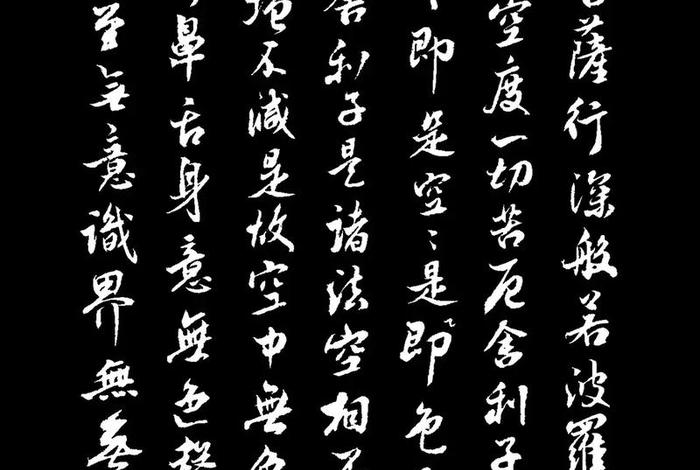 薩行深般若波羅
空度一切苦厄舍利子
即是空〻是即色
舍利子是諸法空相不
增不減是故空中無色
鼻舌身意無色聲
至無意識界無無